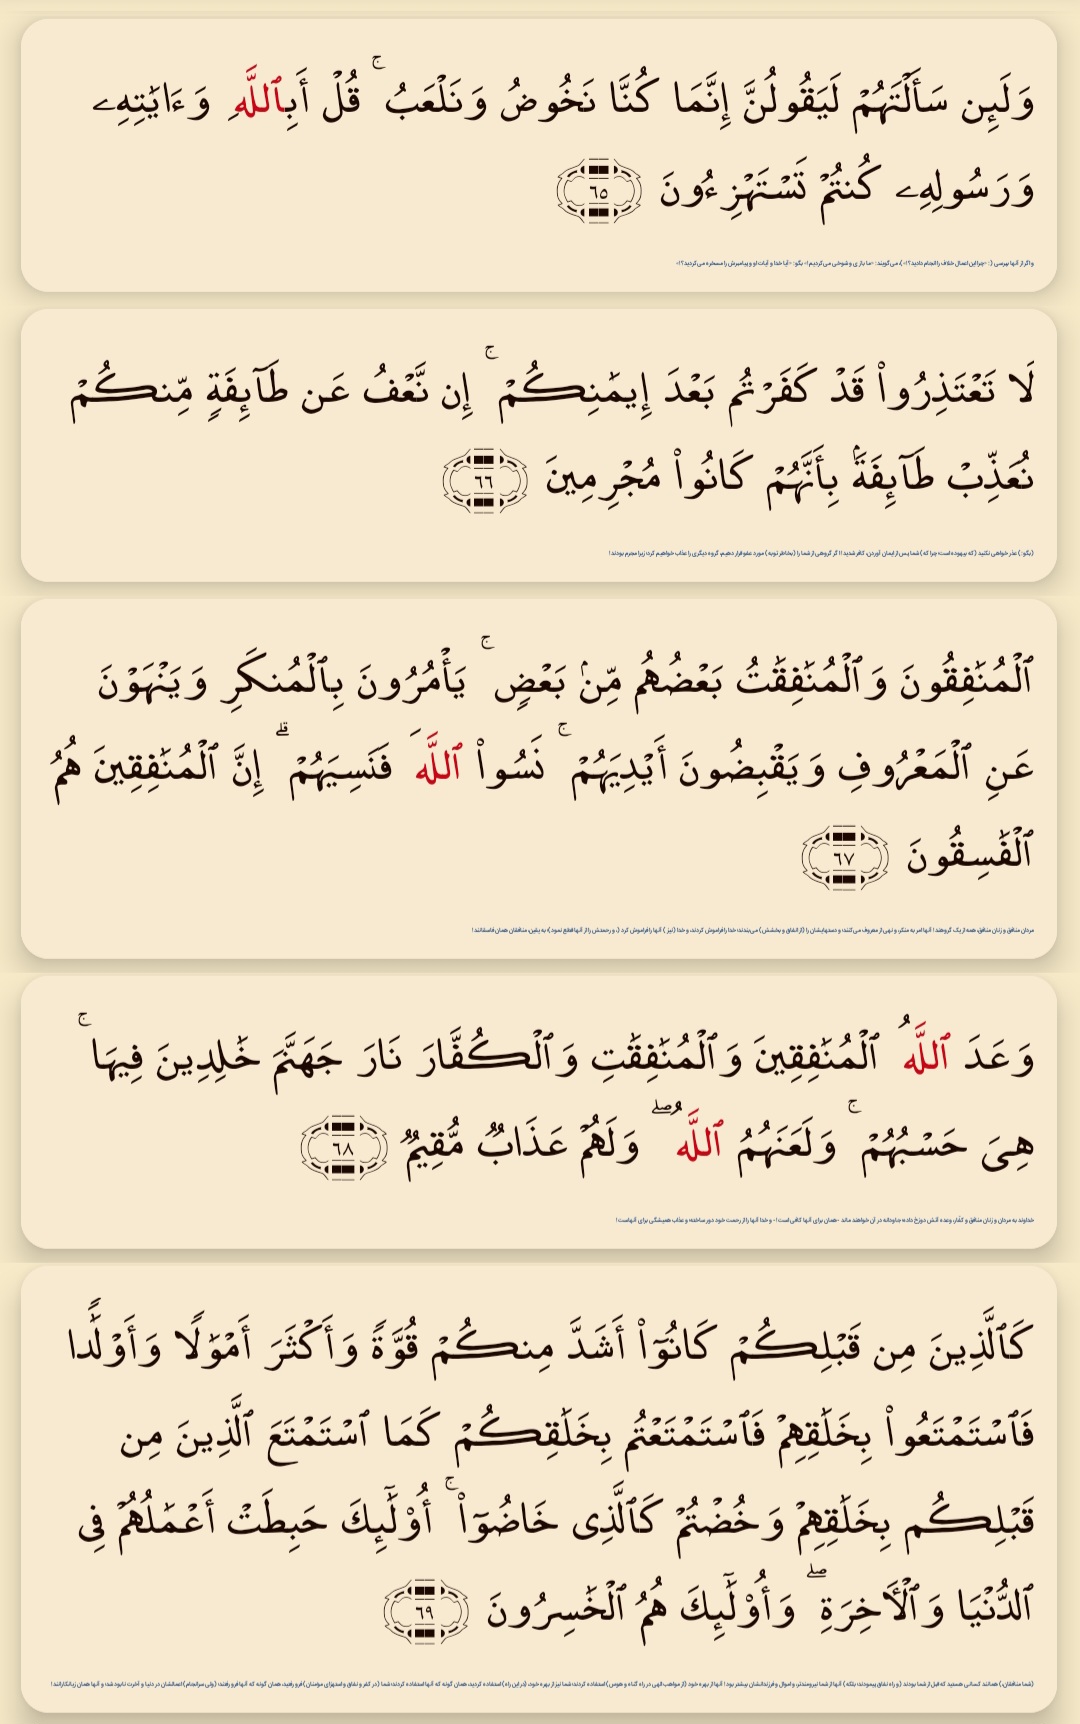 وَلَئِن سَأَلْتَهُمْ لَيَقُولُنَّ إِنَّمَا كُنَّا نَخُوضُ وَنَلْعَبُ ۚ قُلْ أَبِٱللَّهِ وَءَايَٰتِهِۦ
وَرَسُولِهِۦ كُنتُمْ تَسْتَهْزِءُونَ ٦٥
و اگر از آنها بپرسی (: «چرا این اعمال خلاف را انجام دادید؟!»)، می‌گویند: «ما بازی و شوخی می‌کردیم!» بگو: «آیا خدا و آیات او و پیامبرش را مسخره می‌کردید؟!»
لَا تَعْتَذِرُوا۟ قَدْ كَفَرْتُم بَعْدَ إِيمَٰنِكُمْ ۚ إِن نَّعْفُ عَن طَآئِفَةٍ مِّنكُمْ
نُعَذِّبْ طَآئِفَةًۢ بِأَنَّهُمْ كَانُوا۟ مُجْرِمِينَ ٦٦
(بگو:) عذر خواهی نکنید (که بیهوده است؛ چرا که) شما پس از ایمان آوردن، کافر شدید! اگر گروهی از شما را (بخاطر توبه) مورد عفو قرار دهیم، گروه دیگری را عذاب خواهیم کرد؛ زیرا مجرم بودند!
ٱلْمُنَٰفِقُونَ وَٱلْمُنَٰفِقَٰتُ بَعْضُهُم مِّنۢ بَعْضٍ ۚ يَأْمُرُونَ بِٱلْمُنكَرِ وَيَنْهَوْنَ
عَنِ ٱلْمَعْرُوفِ وَيَقْبِضُونَ أَيْدِيَهُمْ ۚ نَسُوا۟ ٱللَّهَ فَنَسِيَهُمْ ۗ إِنَّ ٱلْمُنَٰفِقِينَ هُمُ
ٱلْفَٰسِقُونَ ٦٧
مردان منافق و زنان منافق، همه از یک گروهند! آنها امر به منکر، و نهی از معروف می‌کنند؛ و دستهایشان را (از انفاق و بخشش) می‌بندند؛ خدا را فراموش کردند، و خدا (نیز) آنها را فراموش کرد (، و رحمتش را از آنها قطع نمود)؛ به یقین، منافقان همان فاسقانند!
وَعَدَ ٱللَّهُ ٱلْمُنَٰفِقِينَ وَٱلْمُنَٰفِقَٰتِ وَٱلْكُفَّارَ نَارَ جَهَنَّمَ خَٰلِدِينَ فِيهَا ۚ
هِىَ حَسْبُهُمْ ۚ وَلَعَنَهُمُ ٱللَّهُ ۖ وَلَهُمْ عَذَابٌ مُّقِيمٌ ٦٨
خداوند به مردان و زنان منافق و کفّار، وعده آتش دوزخ داده؛ جاودانه در آن خواهند ماند -همان برای آنها کافی است!- و خدا آنها را از رحمت خود دور ساخته؛ و عذاب همیشگی برای آنهاست!
كَٱلَّذِينَ مِن قَبْلِكُمْ كَانُوٓا۟ أَشَدَّ مِنكُمْ قُوَّةً وَأَكْثَرَ أَمْوَٰلًا وَأَوْلَٰدًا
فَٱسْتَمْتَعُوا۟ بِخَلَٰقِهِمْ فَٱسْتَمْتَعْتُم بِخَلَٰقِكُمْ كَمَا ٱسْتَمْتَعَ ٱلَّذِينَ مِن
قَبْلِكُم بِخَلَٰقِهِمْ وَخُضْتُمْ كَٱلَّذِى خَاضُوٓا۟ ۚ أُو۟لَٰٓئِكَ حَبِطَتْ أَعْمَٰلُهُمْ فِى
ٱلدُّنْيَا وَٱلْـَٔاخِرَةِ ۖ وَأُو۟لَٰٓئِكَ هُمُ ٱلْخَٰسِرُونَ ٦٩
(شما منافقان،) همانند کسانی هستید که قبل از شما بودند (و راه نفاق پیمودند؛ بلکه) آنها از شما نیرومندتر، و اموال و فرزندانشان بیشتر بود! آنها از بهره خود (از مواهب الهی در راه گناه و هوس) استفاده کردند؛ شما نیز از بهره خود، (در این راه) استفاده کردید، همان گونه که آنها استفاده کردند؛ شما (در کفر و نفاق و استهزای مؤمنان) فرو رفتید، همان گونه که آنها فرو رفتند؛ (ولی سرانجام) اعمالشان در دنیا و آخرت نابود شد؛ و آنها همان زیانکارانند!